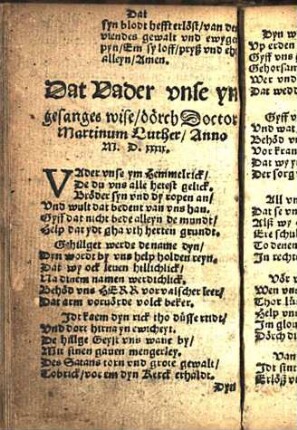 Dat
syn blodt hefft erlöst/van der
viendes gewalt vnd ewyge
pyn/Em sy loff/pryß vnd eh
alleyn/Amen.
Dat Vader vnse yn
gesanges wise/dörch Doctor
Martinum Luther/Anno
M. D. xxxix.
VAder vnse ym Hemmelrick/
De du vns alle heest gelick.
Bröder syn vnd dy ropen an/
Vnd wult dat bedent van vns han.
Gyff dat nicht bede alleyn de mundt/
Help dat ydt gha vth herten grundt.
Gehilliget werde de name dyn/
Dyn wordt by vns help holden reyn.
Dat wy ock leuen hillichlick/
Na dinem namen werdichlick.
Behöd vns HERR vor valscher leer/
Dat arm vorvörde volck beker.
Idt kaem dyn rick tho düsser tydt/
Vnd dort hirna yn ewicheyt.
De hillge Geyst vns wane by/
Mit sinen gauen mengerley.
Des Satans torn vnd grote gewalt/
Tobrick/vor em dyn Kerck erhaldt.
Dyn
Dyn w
Vp erden
Gyff vns
Gehorsam
Wer vnd
Dat wedd
Gyff
Vnd wat
Behöd v
Vor kran
Dat wy
Der sorg
All vn
Dat se
Alse wy
Ere schul
To denen
In recht
Vör
Wen vns
Thor lü
Help vns
Im glou
Dörch d
Van
Idt sint
Erlöß v